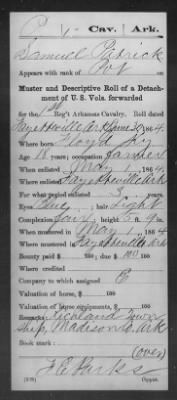 P 1 Cav. Ark.
Samuel Patrick
Appears with rank of Pvt on
Muster and Descriptive Roll of a Detach-
ment of U. S. Vols. forwarded
for the 1st Reg't Arkansas Cavalry. Roll dated
Fayetteville Ark June 30, 1864
Where born Floyd Ky
Age 18 years; occupation Farmer
When enlisted May , 1864
Where enlisted Fayetteville Ark
For what period enlisted 3 years
Eyes Blue ; hair Light
Complexion Fair ; height 5 ft. 9 in.
When mustered in May 1 , 1864
Where mustered in Fayetteville Ark
Bounty paid $ 100; due $ 100
Where credited
Company to which assigned E
Valuation of horse, $ 100
Valuation of horse equipments, $ 100
Remarks: Richland Town
ship, Madison Co, Ark
Book mark:
(over)
J E Parks
Copyist.